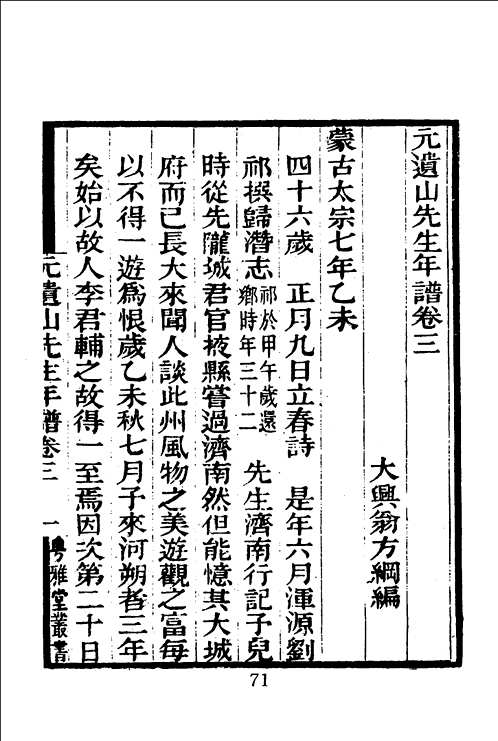 元遺山先生年譜卷三
大興翁方綱編
蒙古太宗七年乙未
四十六歲 正月九日立春詩 是年六月渾源劉
祁撰歸潛志祁於甲午歲還鄉時年三十二 先生濟南行記予兒
時從先隴城君官掖縣嘗過濟南然但能憶其大城
府而已長大來聞人談此州風物之美遊觀之富每
以不得一遊爲恨歲乙未秋七月予來河朔者三年
矣始以故人李君輔之故得一至焉因次第二十日
元遺山先生年譜卷三 一 粤雅堂叢書
71